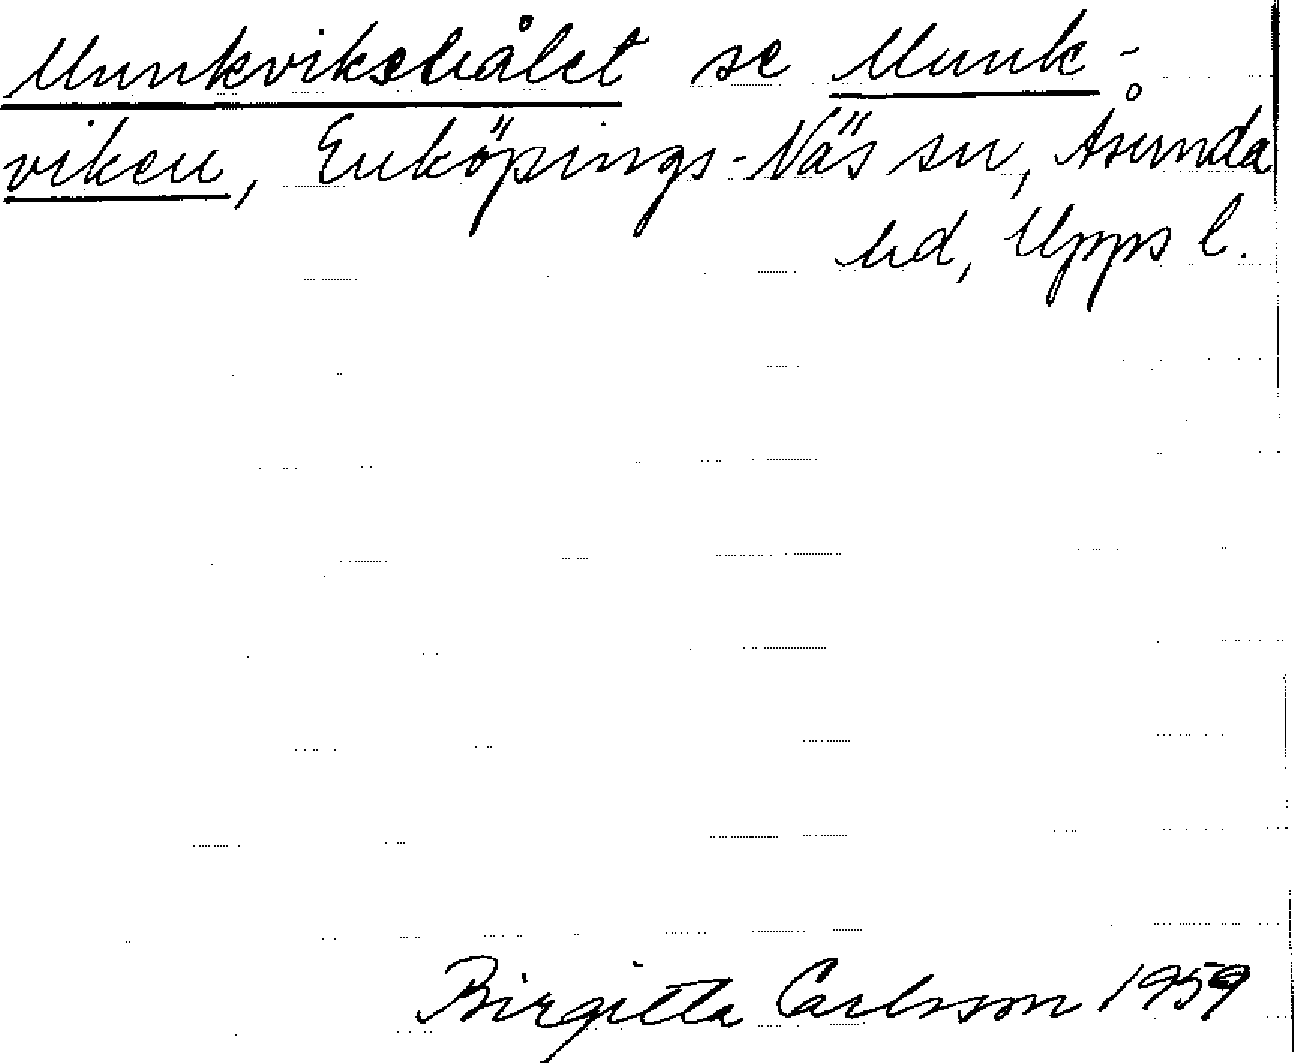 Munkvikshålet se Munk-
viken, Enköpings-Näs sn, Åsunda
hd, Upps l.
Birgitta Carlsson 1959